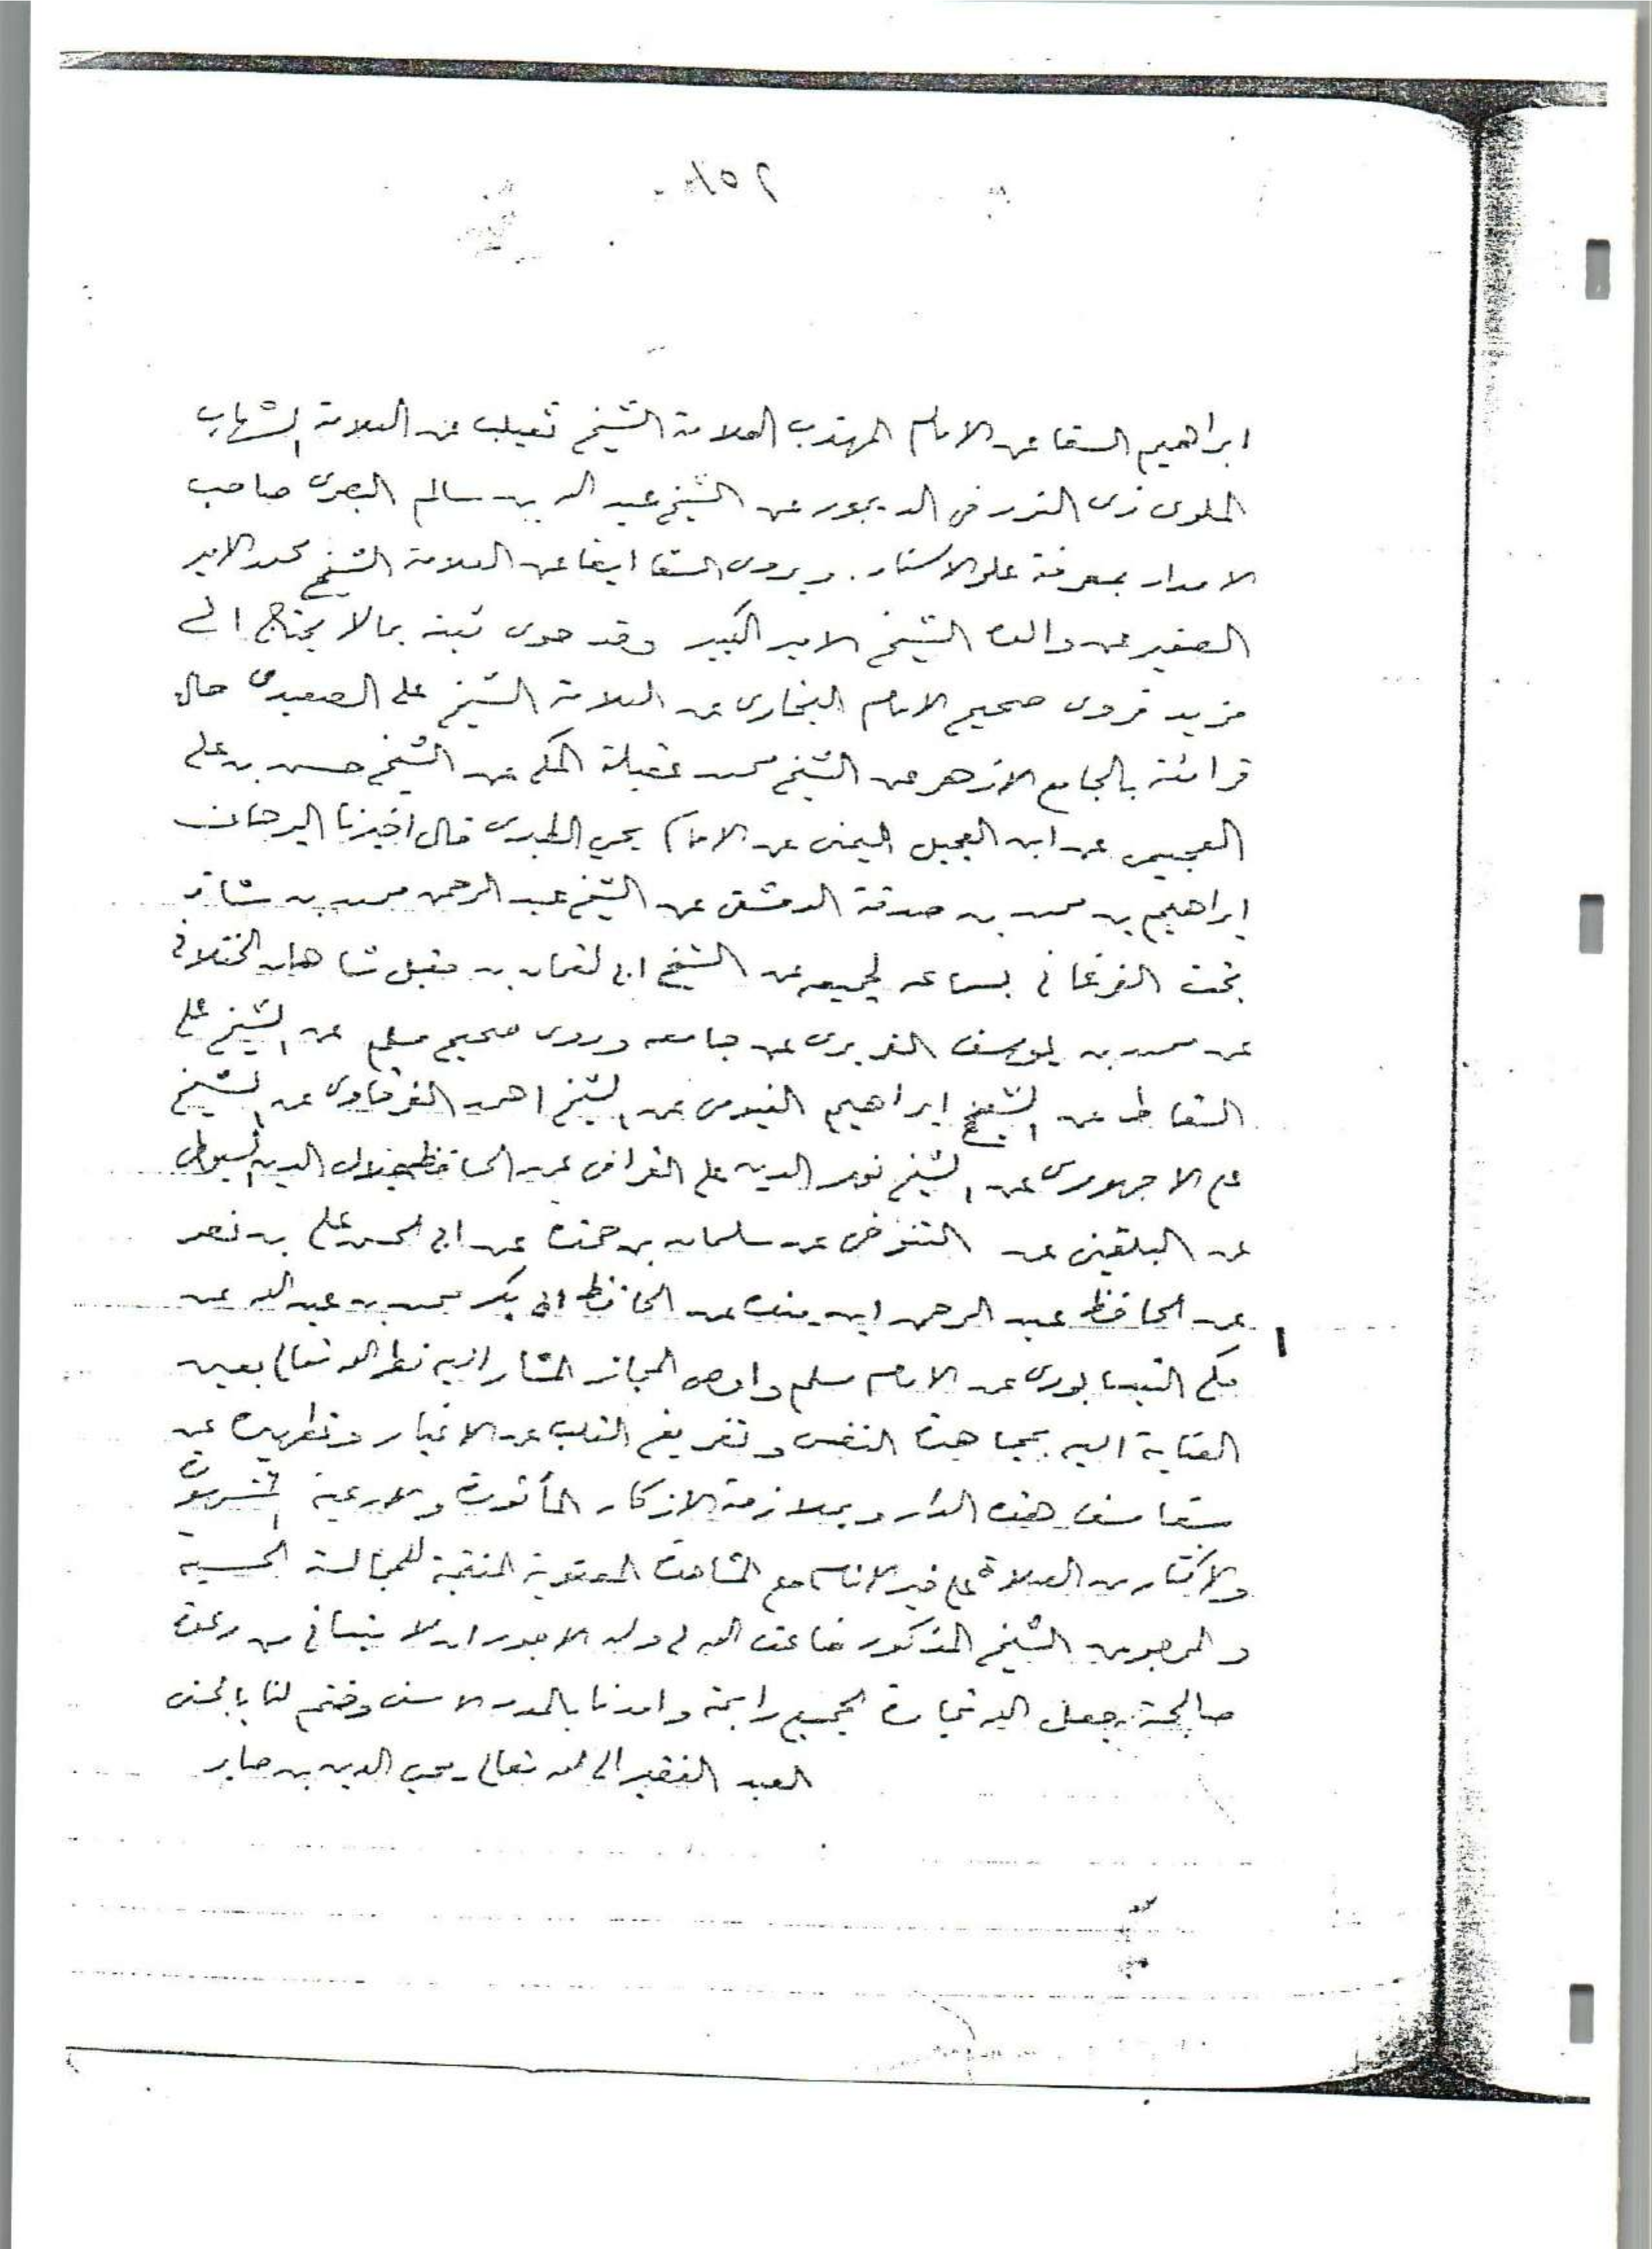 ١٥٢
ابراهيم السقا عن الامام المهذب العلامة الشيخ ثعيلب عن العلامة الشهاب
الملوى ذى النور فى الديجور عن الشيخ عبد الله بن سالم البصرى صاحب
الامداد بمعرفة علو الاسناد. ويروى السقا ايضا عن العلامة الشيخ محمد الامير
الصغير عن والده الشيخ الامير الكبير وقد حوى ثبته بمالا يحتاج الى
مزيد فروى صحيح الامام البخارى عن العلامة الشيخ على الصعيدى حال
قرائته بالجامع الازهر عن الشيخ محمد عقيلة المكى عن الشيخ حسن بن على
العجيمى عن ابن العجيل اليمنى عن الامام يحي الطبرى قال اخبرنا البرهان
ابراهيم بن محمد بن صدقة الدمشقى عن الشيخ عبد الرحمن محمد بن شاذ
بخت الفرغانى بسماعه لجميعه عن الشيخ ابى لقمان بن مقبل شاهان الختلانى
عن محمد بن يوسف الفربرى عن جامعه وروى صحيح مسلم عن الشيخ على
السقاط عن الشيخ ابراهيم الفيومى عن الشيخ احمد الفرقاوى عن الشيخ
على الاجهورى عن الشيخ نور الدين على القرافى عن الحافظ جلال الدين السيوطى
عن البلقينى عن التنوخى عن سلمان بن حمزه عن ابى الحسن على بن نصر
عن الحافظ عبد الرحمن ابن منده عن الحافظ ابى بكر محمد بن عبد الله عن
مكى النيسابورى عن الامام مسلم واوصى المجاز المشار اليه نظر الله تعالى بعين
العناية اليه بمجاهدة النفس وتفريغ القلب عن الاغيار وتطهيره عن
سفاسف هذه الدار وبملازمة الاذكار المأثورة والادعية المشهورة
والاكثار من الصلاة على خير الانام مع المشاهدة المعنوية المنتجة للمجالسة الحسية
والمرجو من الشيخ المذكور ضاعف الله لى وله الاجور ان لا ينسانى من دعوة
صالحة جعل الله تجارة الجميع رابحة وامدنا بالمدد الاسنى وختم لنا بالحسنى
العبد الفقير الى الله تعالى محيى الدين بن صابر